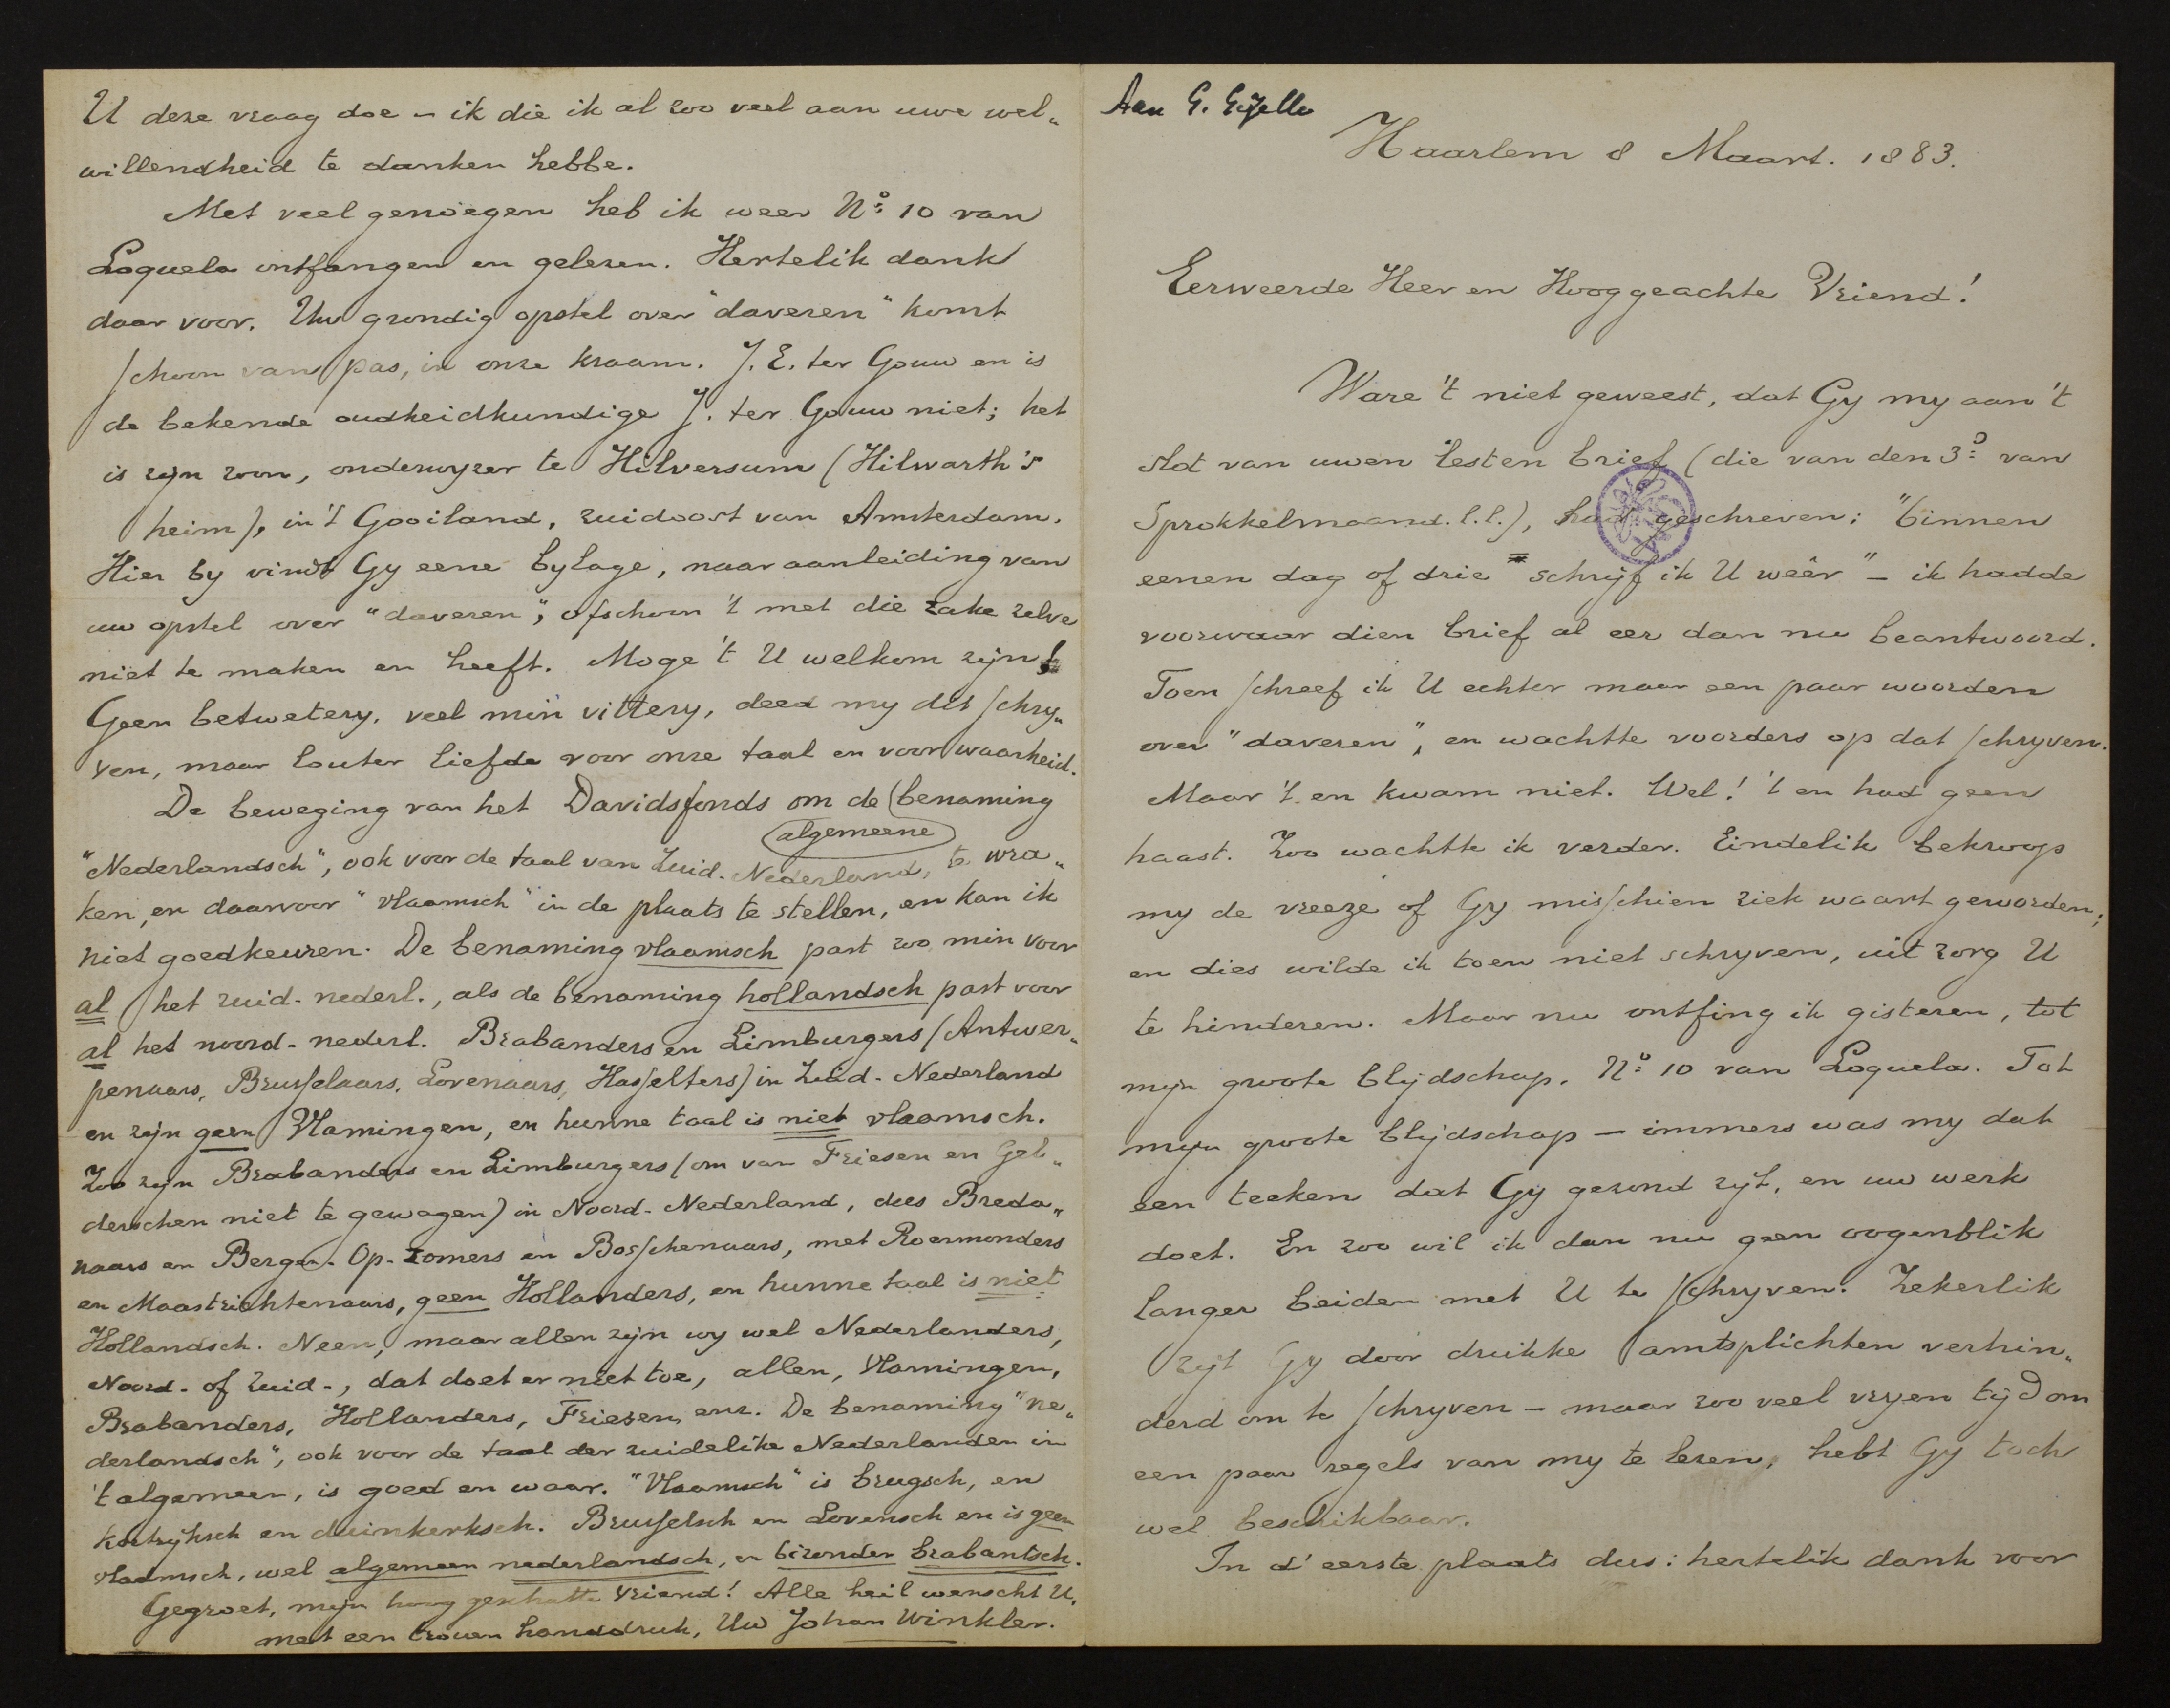 Aan G. Gezelle
Haarlem 8 Maart. 1883.
Eerweerde Heer en Hooggeachte Vriend!
Ware 't niet geweest, dat Gy my aan 't
slot van uwen lesten brief (die van den 3º van
Sprokkelmaand. l.l.), had geschreven: "binnen
eenen dag of drie schrijf ik U weêr" - ik hadde
voorwaar dien brief al eer dan nu beantwoord.
Toen schreef ik U echter maar een paar woorden
over "daveren", en wachtte voorders op dat schryven.
Maar 't en kwam niet. Wel! 't en had geen
haast. Zoo wachtte ik verder. Eindelik bekroop
my de vreeze of Gy misschien ziek waart geworden;
en dies wilde ik toen niet schryven, uit zorg U
te hinderen. Maar nu ontfing ik gisteren, tot
mijn groote blijdschap, Nº 10 van Loquela. Tot
mijn groote blijdschap — immers was my dat
een teeken dat Gy gezond zyt, en uw werk
doet. En zoo wil ik dan nu geen oogenblik
langer beiden met U te schryven. Zekerlik
zyt Gy door drukke amtsplichten verhin„
derd om te schryven — maar zoo veel vryen tijd om
een paar regels van my te lezen, hebt Gy toch
wel beschikbaar.
In d' eerste plaats dus: hertelik dank voor
U deze vraag doe - ik die ik al zoo veel aan uwe wel„
willendheid te danken hebbe.
Met veel genoegen heb ik weer Nº 10 van
Loquela ontfangen en gelezen. Hertelik dank
daar voor. Uw grondig opstel over "daveren" komt
schoon van pas, in onze kraam. J. E. ter Gouw en is
de bekende oudheidkundige J. ter Gouw niet; het
is zijn zoon, onderwyzer te Hilversum (Hilwarth's
heim), in 't Gooiland, zuidoost van Amsterdam.
Hier by vindt Gy eene bylage, naar aanleiding van
uw opstel over "daveren", ofschoon 't met die zake zelve
niet te maken en heeft. Moge 't U welkom zijn!
Geen betwetery, veel min vittery, deed my dit schry„
ven, maar louter liefde voor onze taal en voor waarheid.
De beweging van het Davidsfonds om de benaming
algemeene
"Nederlandsch", ook voor de taal van Zuid-Nederland, te wra„
ken, en daarvoor "vlaamsch" in de plaats te stellen, en kan ik
niet goedkeuren. De benaming vlaamsch past zoo min voor
al het zuid-nederl., als de benaming hollandsch past voor
al het noord-nederl. Brabanders en Limburgers (Antwer„
penaars, Brusselaars, Lovenaars, Hasselters) in Zuid-Nederland
en zijn geen Vlamingen, en hunne taal is niet vlaamsch.
Zoo zijn Brabanders en Limburgers (om van Friesen en Gel„
derschen niet te gewagen) in Noord-Nederland, dus Breda„
naars en Bergen-Op-Zomers en Bosschenaars, met Roermonders
en Maastrichtenaars, geen Hollanders, en hunne taal is niet
Hollandsch. Neen, maar allen zijn wy wel Nederlanders,
Noord- of Zuid-, dat doet er niet toe, allen, Vlamingen,
Brabanders, Hollanders, Friesen, enz. De benaming "ne„
derlandsch", ook voor de taal der zuidelike Nederlanden in
't algemeen, is goed en waar. "Vlaamsch" is brugsch, en
kortryksch en duinkerksch. Brusselsch en Lovensch en is geen
vlaamsch, wel algemeen nederlandsch, en bizonder brabantsch.
Gegroet, mijn hoog geschatte vriend! Alle heil wenscht U,
met een trouen handdruk, Uw Johan Winkler.